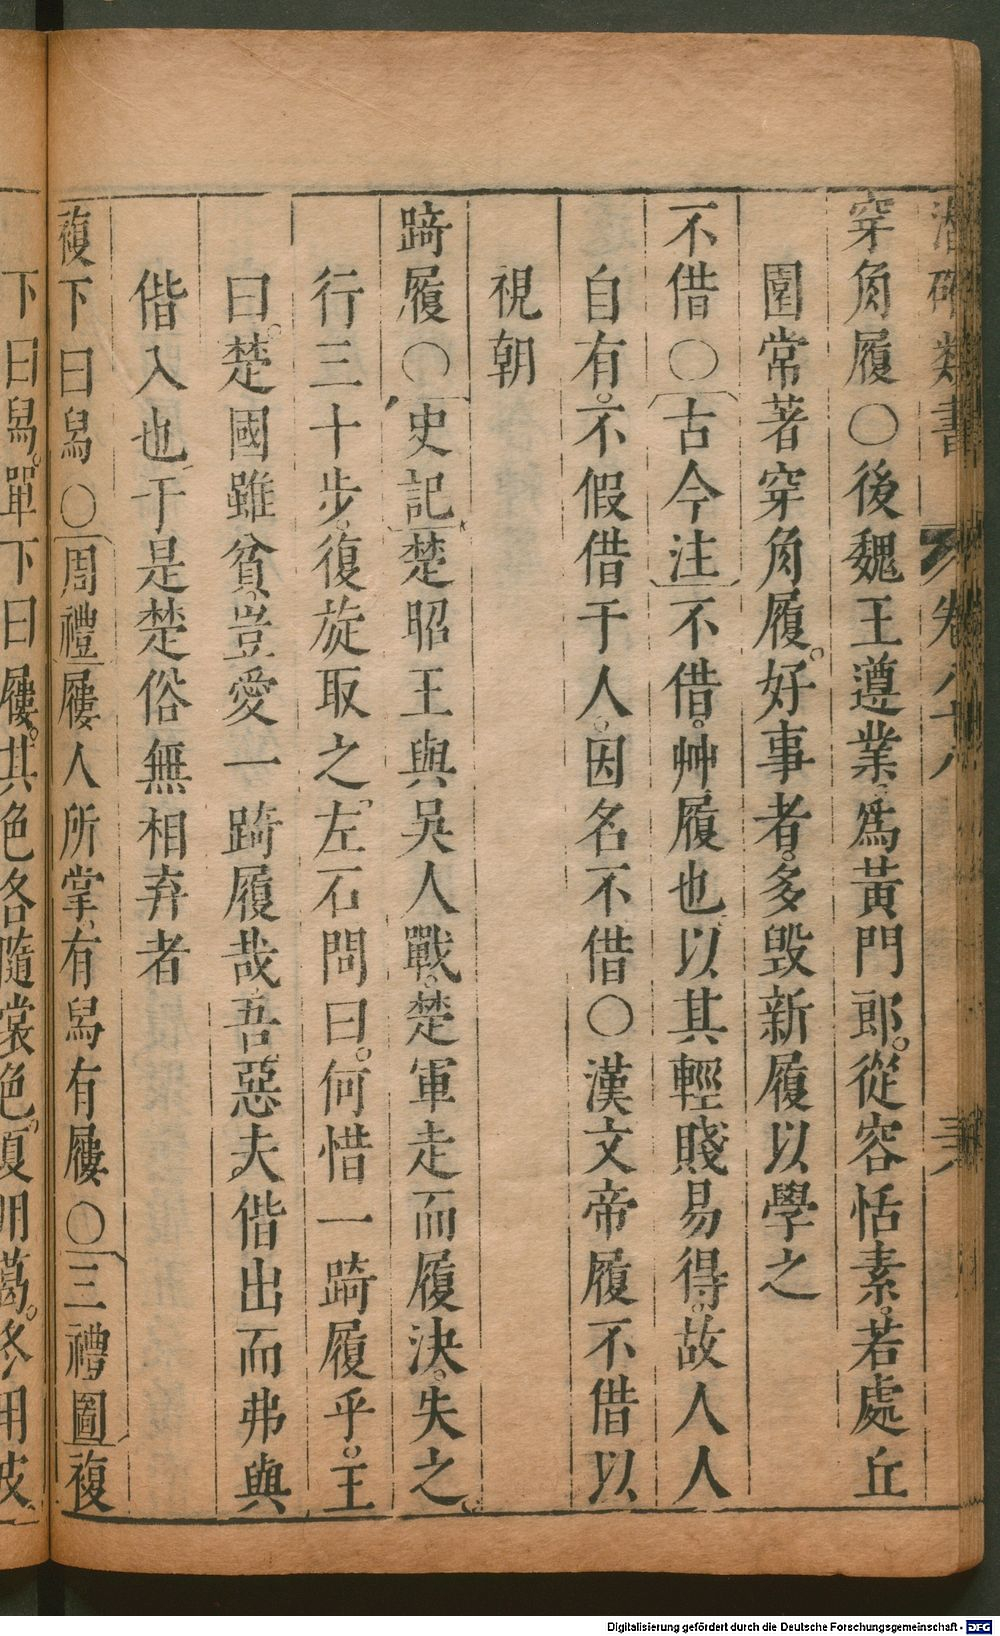 潛確類書 卷八十八
穿角履○後魏王遵業。為黃門郎。從容恬素。若處丘
園常著穿角履。好事者。多毀新履以學之
不借○古今注不借。艸履也。以其輕賤易得。故人人
自有。不假借于人。因名不借○漢文帝履不借以
視朝
踦履○史記楚昭王與吳人戰。楚軍走而履決。失之。
行三十步。復旋取之。左右問曰。何惜一踦履乎。王
曰。楚國雖貧。豈愛一踦履哉。吾惡夫偕出而弗與
偕入也。于是楚俗無相弃者
複下曰舄○周禮屨人所掌。有舄有屨○三禮圖複
下曰舄。單下曰屨。其色各隨裳色。夏用葛。冬用皮。
Digitalisierung gefördert durch die Deutsche Forschungsgemeinschaft - DFG